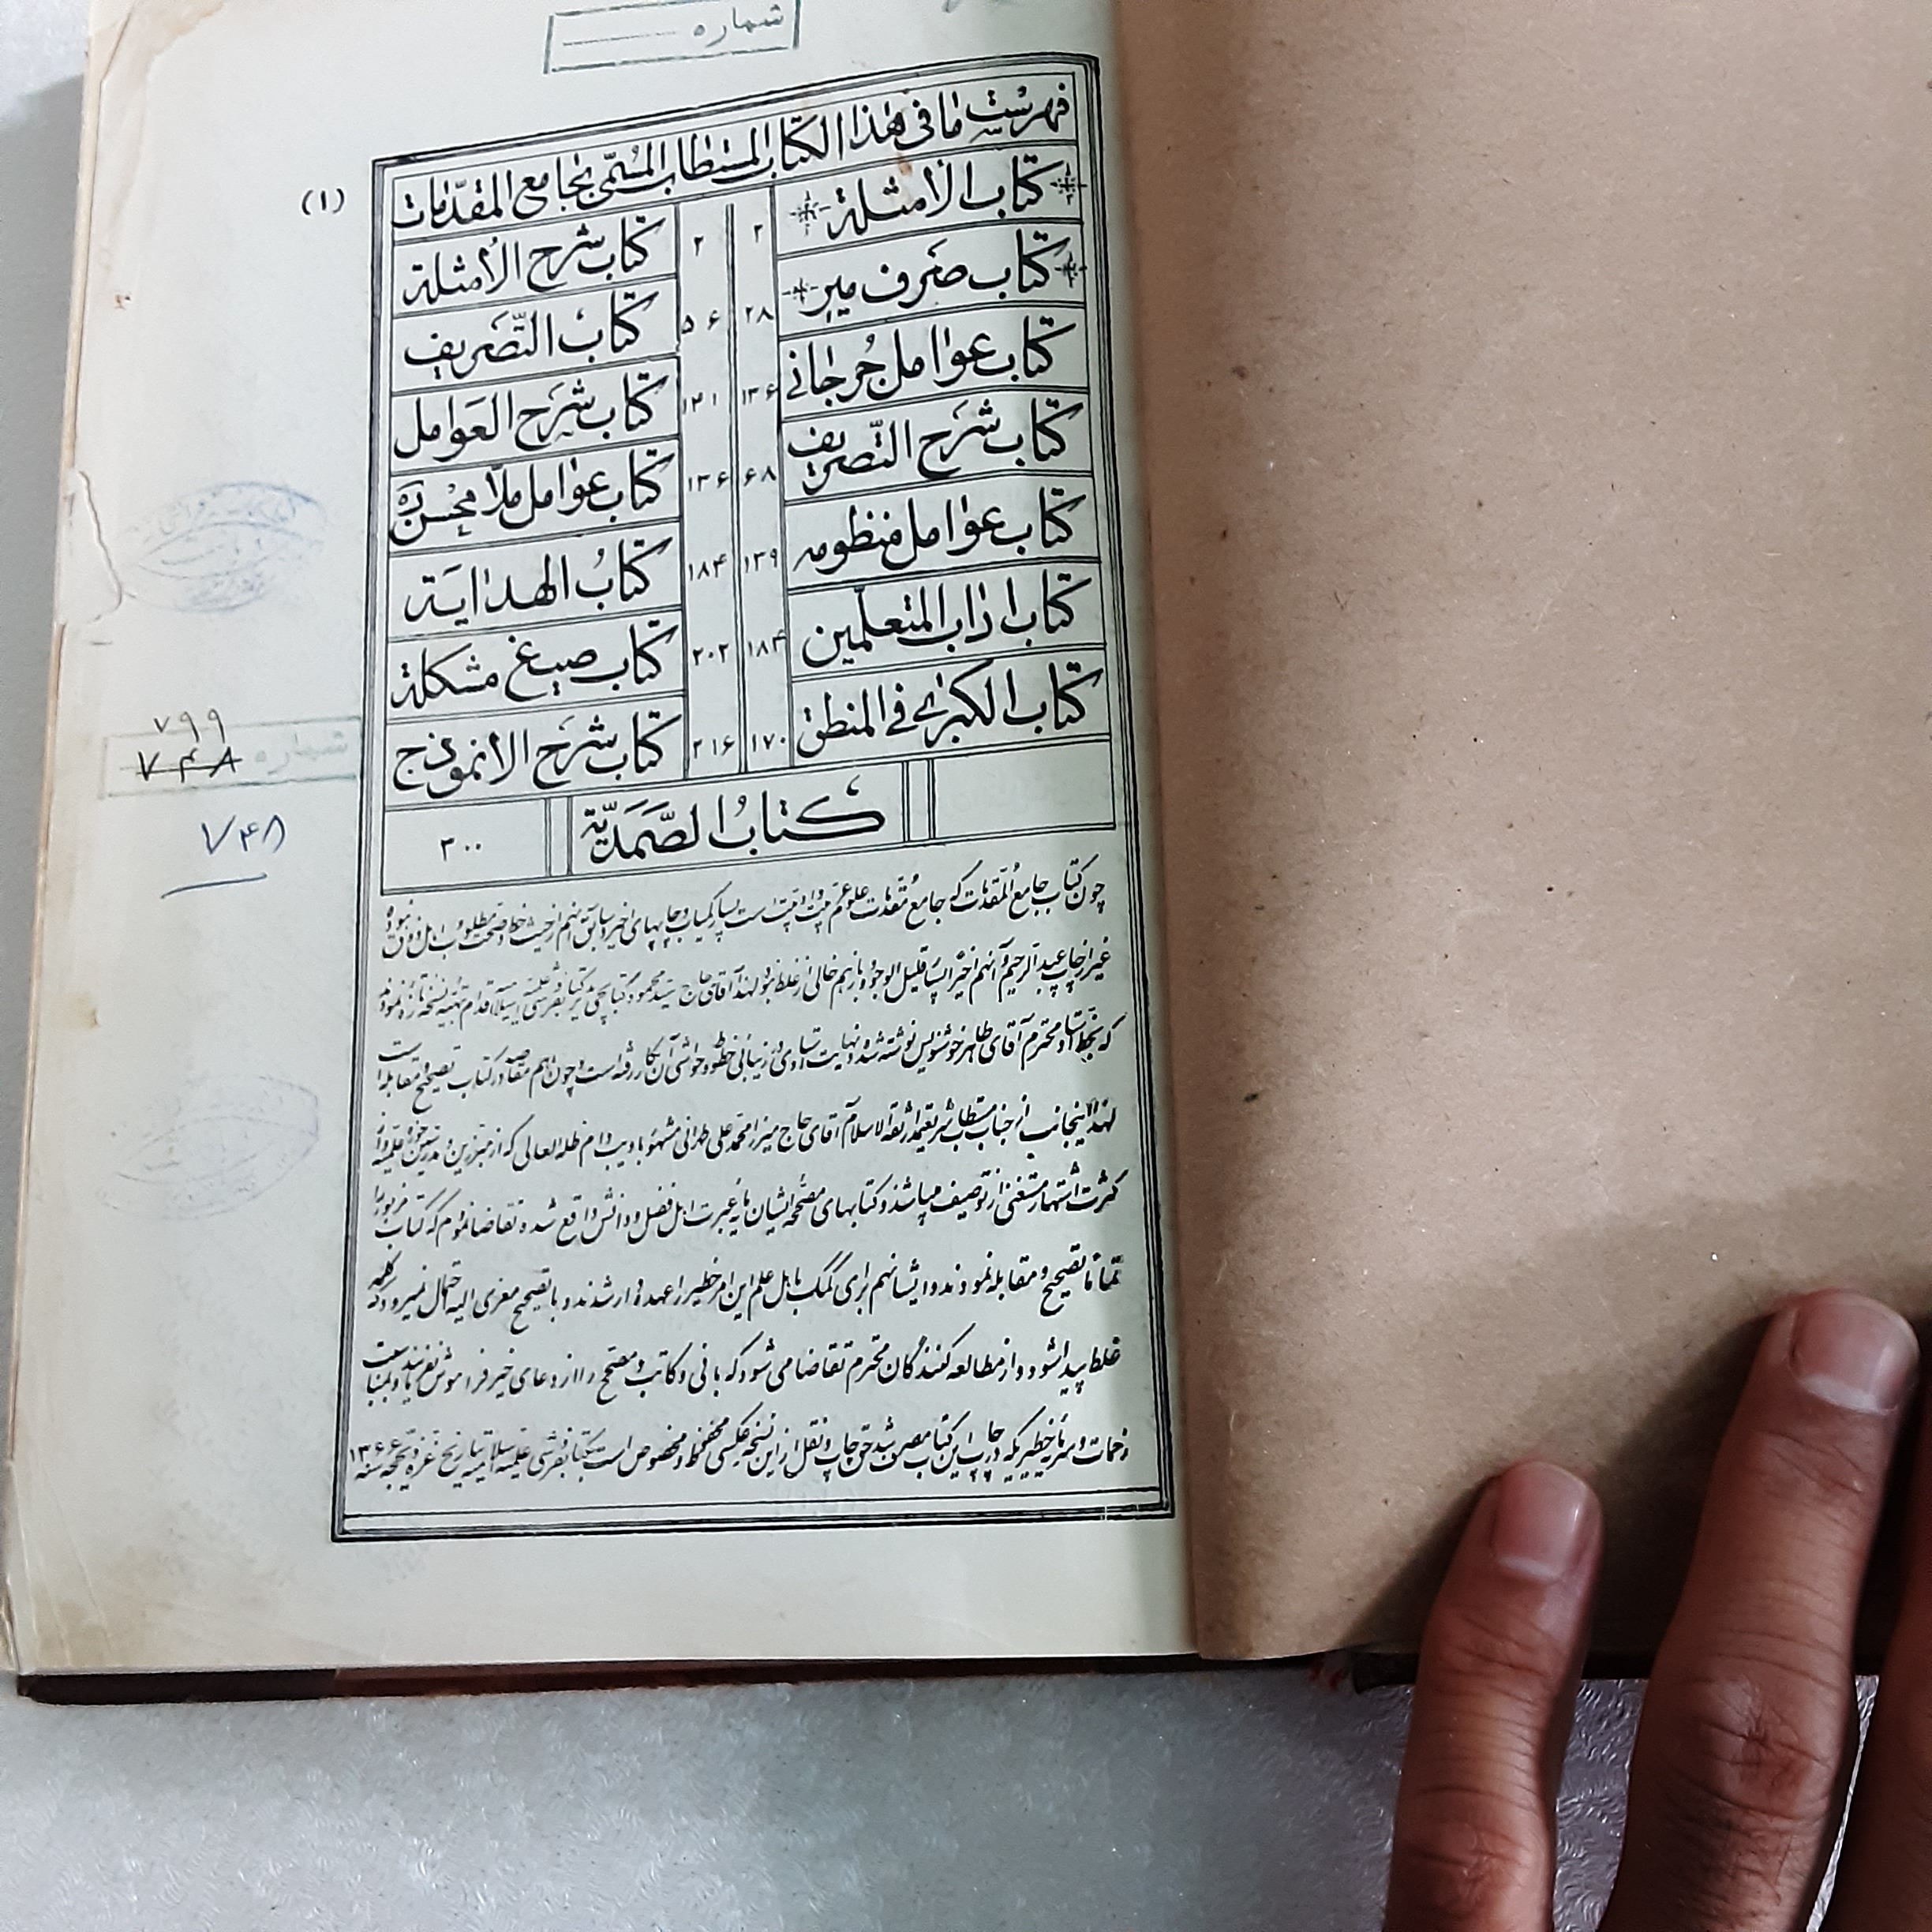 شماره
فهرست ما فی هذا الکتاب المستطاب المسمّی بجامع المقدّمات
(۱)
کتاب الأمثلة ۲ ۲ کتاب شرح الأمثلة
کتاب صرف میر ۲۸ ۵۶ کتاب التّصریف
کتاب عوامل جرجانی ۱۳۶ ۱۲۱ کتاب شرح العوامل
کتاب شرح التّصریف ۶۸ ۱۳۶ کتاب عوامل ملا محسن ره
کتاب عوامل منظومه ۱۳۹ ۱۸۴ کتاب الهدایة
کتاب اداب المتعلّمین ۱۸۴ ۲۰۲ کتاب صیغ مشکلة
کتاب الکبری فی المنطق ۱۷۰ ۲۱۶ کتاب شرح الانموذج
کتاب الصّمدیّة ۳۰۰
۷۹۹
شماره ۷۴۸
۷۴۸
چون کتاب جامع المقدمات که جامع مقدمات علوم است بسیار کمیاب و چاپهای اخیر و سابق آنهم از حیث خط و صحت مطلوب اهل ذوق نبوده
غیر از چاپ عبد الرحیم و آنهم اخیرا بسیار قلیل الوجود و بازهم خالی از غلط نبود لهذا آقای حاج سید محمود کتابچی مدیر کتابفروشی علمیه اسلامیه اقدام بتهیه نسخه تازه نمودند
که بخط استاد محترم آقای طاهر خوشنویس نوشته شده و نهایت استادی در زیبائی خط و حواشی آن بکار رفته است و چون اهم مقاصد در کتاب تصحیح و مقابله است
لهذا اینجانب از جناب مستطاب شریعتمدار ثقة الاسلام آقای حاج میرزا محمد علی طهرانی مشهور بادیب دام ظله العالی که از مبرزین و مدرسین حوزه علمیه و از
کثرت اشتهار مستغنی از توصیف میباشند و کتابهای مصححه ایشان مایه عبرت اهل فضل و دانش واقع شده تقاضا نمودم که کتاب مزبور را
تماما تصحیح و مقابله نمودند و ایشانهم برای کمک باهل علم این امر خطیر را عهده دار شدند و با تصحیح معزی الیه احتمال نمیرود که کلمه
غلط پیدا شود و از مطالعه کنندگان محترم تقاضا می شود که بانی و کاتب و مصحح را از دعای خیر فراموش نفرمایند و بمناسبت
زحمات و سرمایه خطیریکه در چاپ این کتاب مصرف شد حق چاپ و نقل از این نسخه عکسی محفوظ و مخصوص است بکتابفروشی علمیه اسلامیه بتاریخ غره ذیحجه سنه ۱۳۶۶